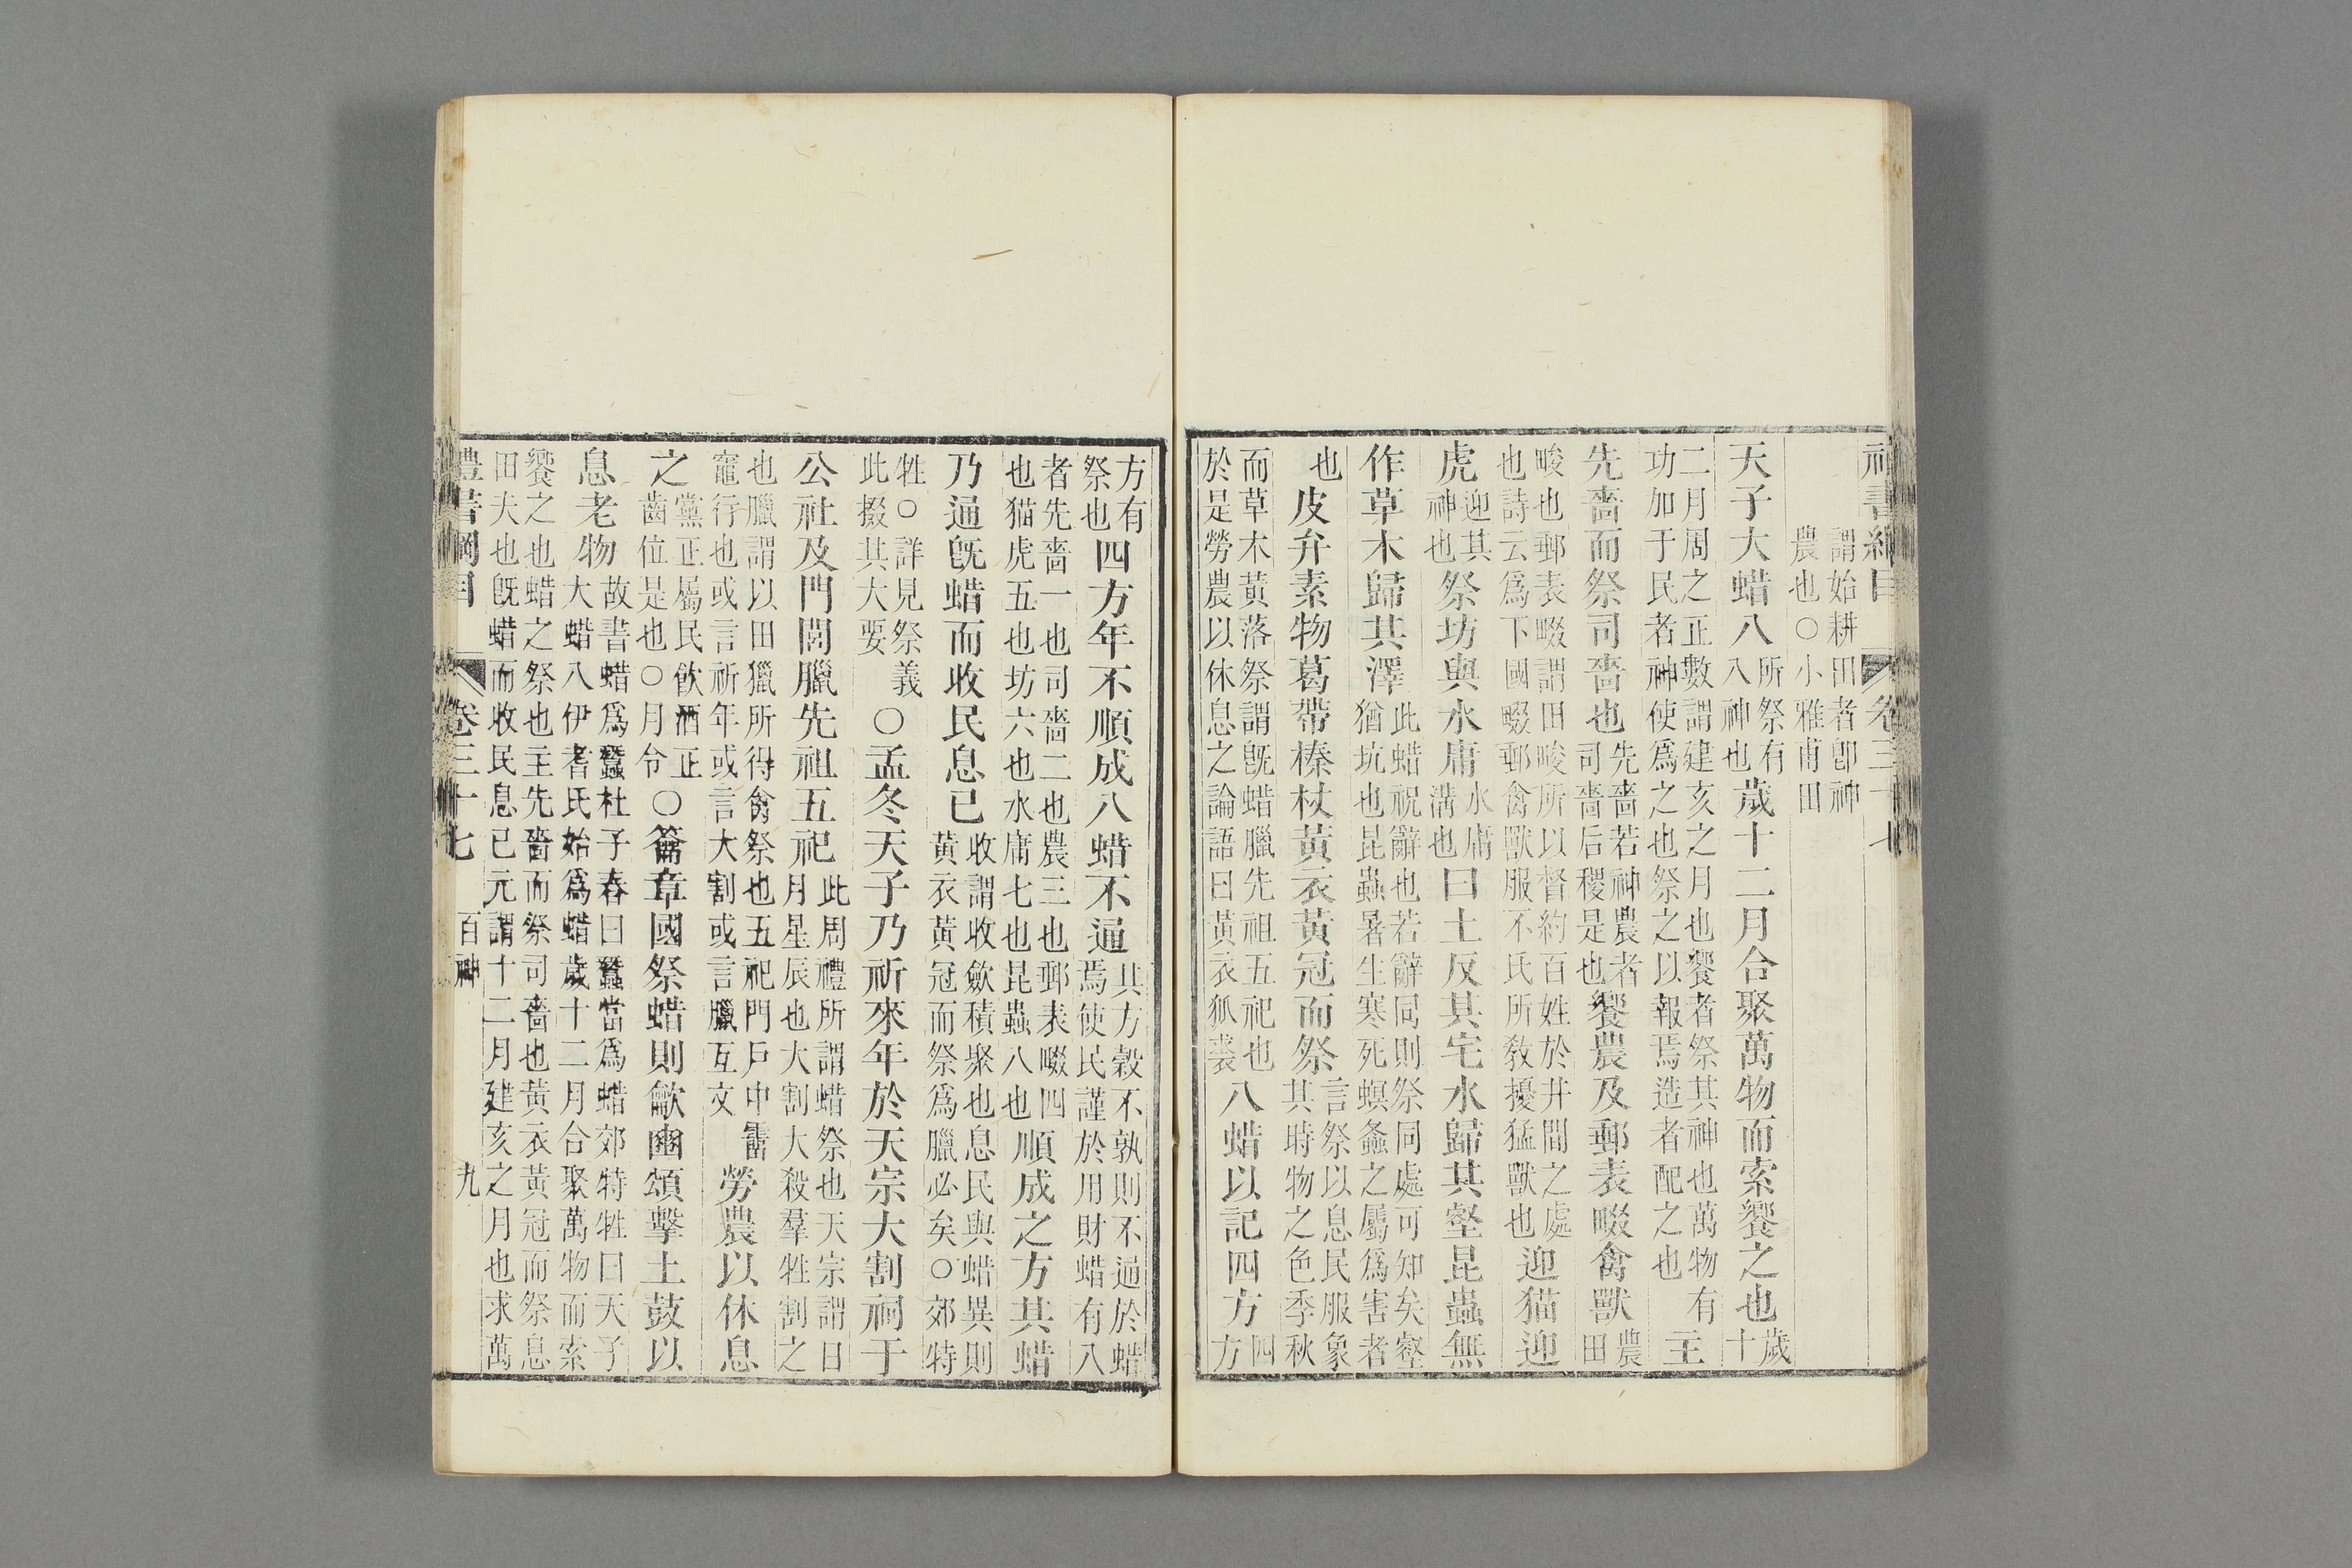 禮書綱目　卷三十七
謂始耕田者卽神
農也○小雅甫田
天子大蜡八所祭有八神也歲十二月合聚萬物而索饗之也歲十
二月周之正數謂建亥之月也饗者祭其神也萬物有功加于民者神使爲之也祭之以報焉造者配之也主
先嗇而祭司嗇也先嗇若神農者司嗇后稷是也饗農及郵表畷禽獸農田
畯也郵表畷謂田畯所以督約百姓於井閒之處也詩云爲下國畷郵禽獸服不氏所敎擾猛獸也迎猫迎
虎迎其神也祭坊與水庸水庸溝也曰土反其宅水歸其壑昆蟲無
作草木歸其澤此蜡祝辭也若辭同則祭同處可知矣壑猶坑也昆蟲暑生寒死螟螽之屬爲害者
也皮弁素物葛帶榛杖黃衣黃冠而祭言祭以息民服象其時物之色季秋
而草木黃落祭謂旣蜡臘先祖五祀也於是勞農以休息之論語曰黃衣狐裘八蜡以記四方四方
方有祭也四方年不順成八蜡不通其方穀不孰則不通於蜡焉使民謹於用財蜡有八
者先嗇一也司嗇二也農三也郵表畷四也猫虎五也坊六也水庸七也昆蟲八也順成之方其蜡
乃通旣蜡而收民息已收謂收斂積聚也息民與蜡異則黃衣黃冠而祭爲臘必矣○郊特
牲○詳見祭義此掇其大要○孟冬天子乃祈來年於天宗大割祠于
公社及門閭臘先祖五祀此周禮所謂蜡祭也天宗謂日月星辰也大割大殺羣牲割之
也臘謂以田獵所得禽祭也五祀門戶中霤竈行也或言祈年或言大割或言臘互文勞農以休息
之黨正屬民飮酒正齒位是也○月令○籥章國祭蜡則龡豳頌擊土鼓以
息老物故書蜡爲蠶杜子春曰蠶當爲蜡郊特牲曰天子大蜡八伊耆氏始爲蜡歲十二月合聚萬物而索
饗之也蜡之祭也主先嗇而祭司嗇也黃衣黃冠而祭息田夫也旣蜡而收民息已元謂十二月建亥之月也求萬
禮書綱目　卷三十七　百神　九